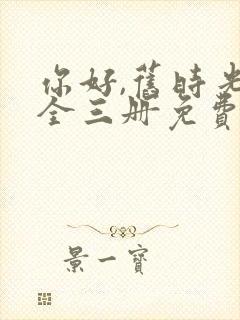 你好,舊時光
全三册免費
景一寶